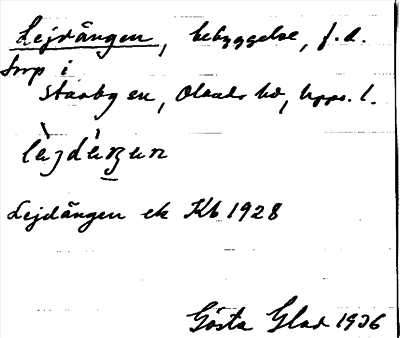 Lejdängen, bebyggelse, f.d.
torp i
Starby sn, Olands hd, Upps. l.
Lejdängen ek Kb 1928
Gösta Glad 1936